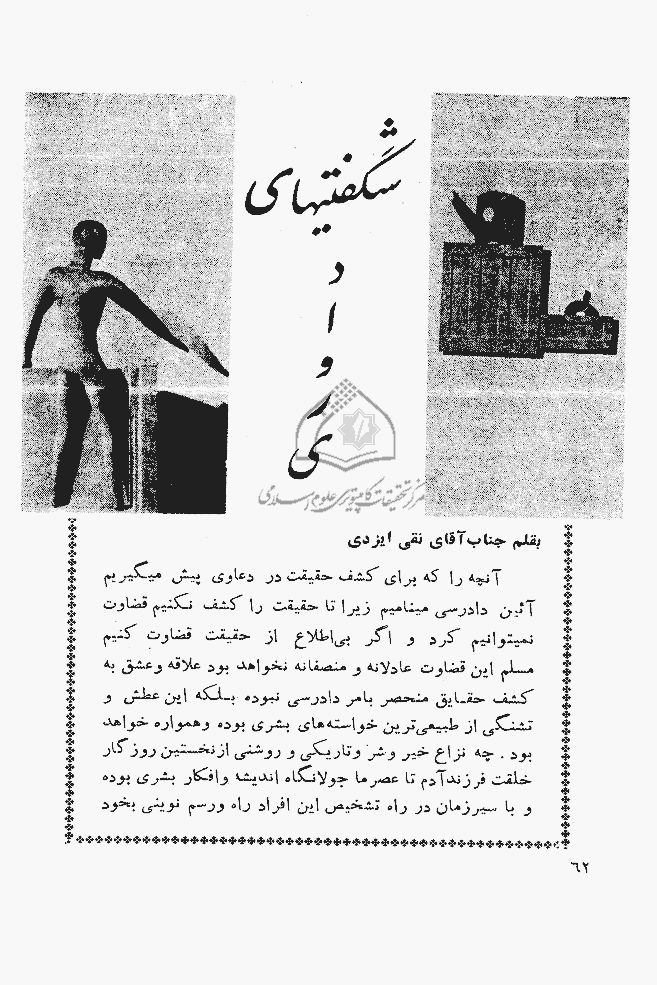 شگفتیهای
د
ا
و
ر
ی
مرکز تحقیقات کامپیوتری علوم اسلامی
بقلم جناب آقای نقی ایزدی
آنچه را که برای کشف حقیقت در دعاوی پیش میگیریم
آئین دادرسی مینامیم زیرا تا حقیقت را کشف نکنیم قضاوت
نمیتوانیم کرد و اگر بی‌اطلاع از حقیقت قضاوت کنیم
مسلم این قضاوت عادلانه و منصفانه نخواهد بود علاقه و عشق به
کشف حقایق منحصر بامر دادرسی نبوده بلکه این عطش و
تشنگی از طبیعی‌ترین خواسته‌های بشری بوده و همواره خواهد
بود . چه نزاع خیر و شر و تاریکی و روشنی از نخستین روز گار
خلقت فرزند آدم تا عصر ما جولانگاه اندیشه و افکار بشری بوده
و با سیر زمان در راه تشخیص این افراد راه و رسم نوینی بخود
٦٢